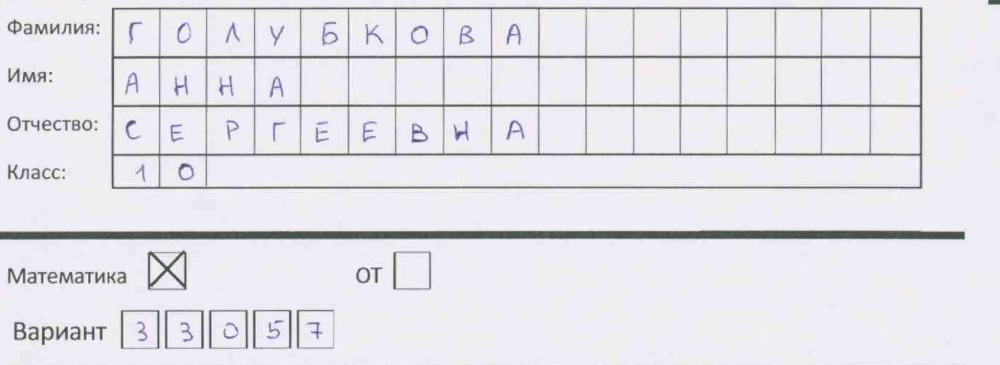 Фамилия: ГОЛУБКОВА
Имя: АННА
Отчество: СЕРГЕЕВНА
Класс: 10
Математика ОТ
Вариант 33057